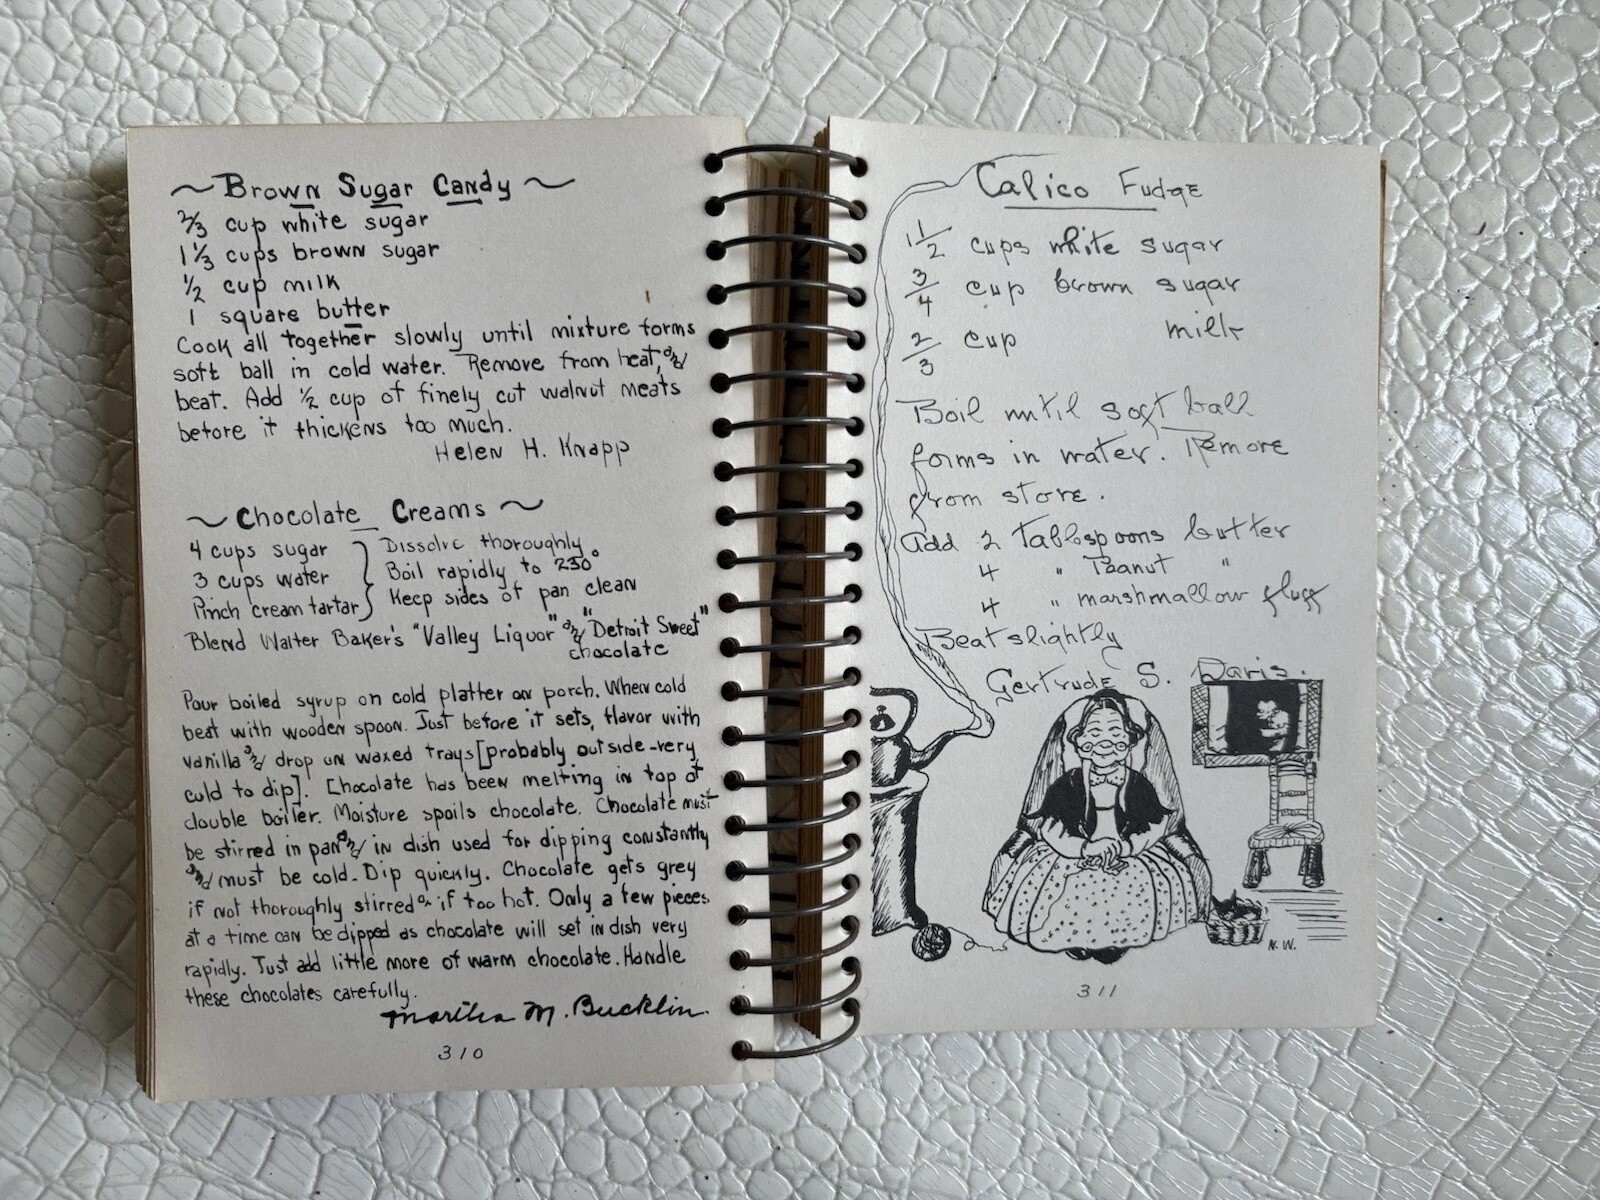 ~ Brown Sugar Candy ~
2/3 cup white sugar
1 1/3 cups brown sugar
1/2 cup milk
1 square butter
Cook all together slowly until mixture forms
soft ball in cold water. Remove from heat, and
beat. Add 1/2 cup of finely cut walnut meats
before it thickens too much.
Helen H. Knapp
~ Chocolate Creams ~
4 cups sugar } Dissolve thoroughly.
3 cups water } Boil rapidly to 230°
Pinch cream tartar } Keep sides of pan clean
Blend Walter Baker's "Valley Liquor" and "Detroit Sweet"
chocolate
Pour boiled syrup on cold platter on porch. When cold
beat with wooden spoon. Just before it sets, flavor with
vanilla and drop on waxed trays [probably outside-very
cold to dip]. Chocolate has been melting in top of
double boiler. Moisture spoils chocolate. Chocolate must
be stirred in pan and in dish used for dipping constantly
and must be cold. Dip quickly. Chocolate gets grey
if not thoroughly stirred or if too hot. Only a few pieces
at a time can be dipped as chocolate will set in dish very
rapidly. Just add little more of warm chocolate. Handle
these chocolates carefully.
Martha M. Bucklin.
310
Calico Fudge
1 1/2 cups white sugar
3/4 cup brown sugar
2/3 cup milk
Boil until soft ball
forms in water. Remove
from stove.
Add 2 Tablespoons butter
4 " Peanut "
4 " marshmallow fluff
Beat slightly
Gertrude S. Davis.
N. W.
311